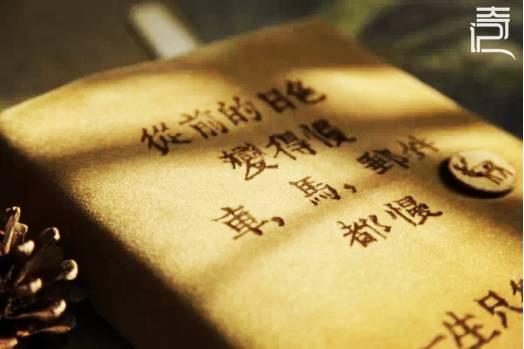 從前的日色
變得慢
車，馬，郵件
都慢
一生只